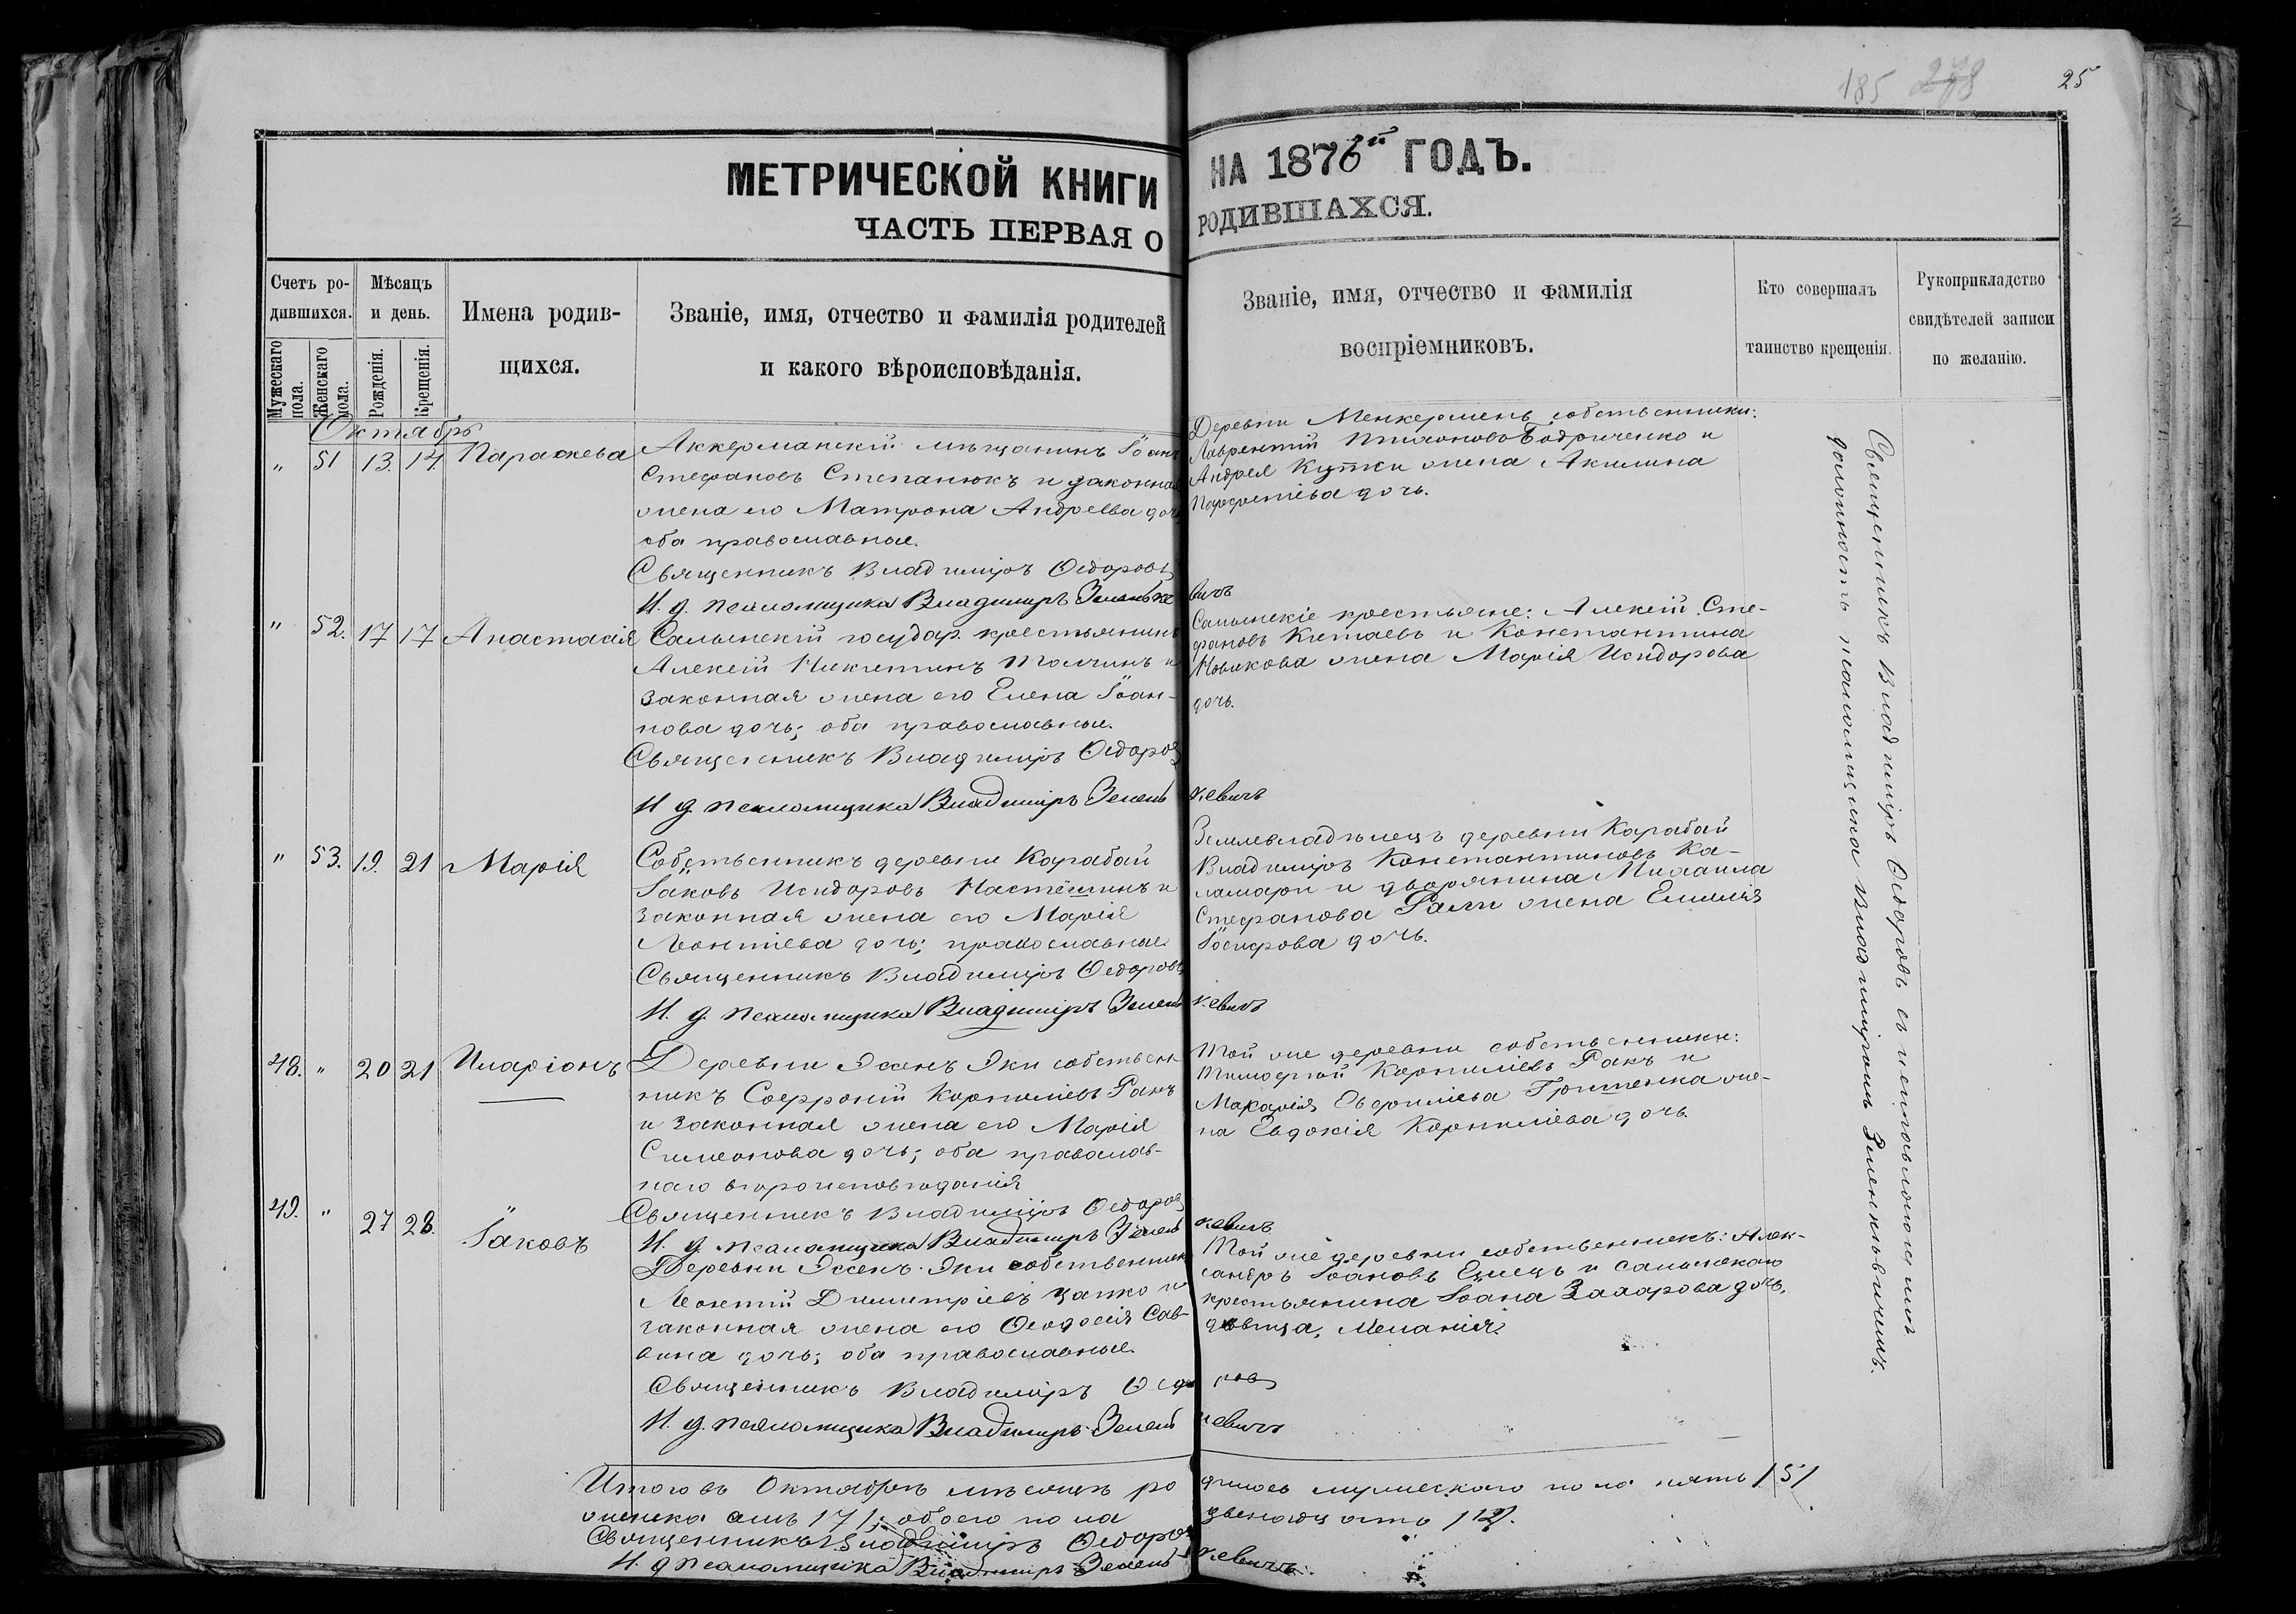 185 278 25
МЕТРИЧЕСКОЙ КНИГИ НА 1876й ГОДЪ.
ЧАСТЬ ПЕРВАЯ О РОДИВШАХСЯ.
Счетъ родившихся.
Мужескаго пола.
Женскаго пола.
Мѣсяцъ и день.
Рожденія.
Крещенія.
Имена родившихся.
Званіе, имя, отчество и фамилія родителей
и какого вѣроисповѣданія.
Званіе, имя, отчество и фамилія
воспріемниковъ.
Кто совершалъ
таинство крещенія.
Рукоприкладство
свидѣтелей записи
по желанію.
Октябрь
" 51 13. 14. Параскева
Аккерманскій мѣщанинъ Іоаннъ
Стефановъ Степанюкъ и законная
жена его Матрона Андреева дочь
оба православные.
Священникъ Владиміръ Ѳедоровъ
И. д. псаломщика Владимиръ Зеленькевичъ
Деревни Менкермень собственники:
Лаврентій
Андрея жена Акилина
дочь.
" 52. 17 17 Анастасія
Салынскій государ. крестьянинъ
Алексій Никитинъ Толчинъ и
законная жена его Елена Іоаннова дочь; оба православные.
Священникъ Владиміръ Ѳедоровъ
И д. псаломщика Владимиръ Зеленькевичъ
Салынскіе крестьяне: Алексій Стефановъ Китаевъ и Константина
Новикова жена Марія Исидорова
дочь.
" 53. 19. 21 Марія
Собственникъ деревни Карабай
Іаковъ Исидоровъ и
законная жена его Марія
Леонтіева дочь; православные
Священникъ Владиміръ Ѳедоровъ
И. д. псаломщика Владимиръ Зеленькевичъ
Землевладѣлецъ деревни Карабай
Владиміръ Константиновъ Каламари и дворянина Михаила
Стефанова Рали жена Емилія
Іосифова дочь.
48. " 20 21 Иларіонъ
Деревни Эсенъ Эки собственникъ Софроній Корниліевъ Ракъ
и законная жена его Марія
Симеонова дочь; оба православнаго вѣроисповѣданія
Священникъ Владиміръ Ѳедоровъ
И. д. псаломщика Владимиръ Зеленькевичъ
Той же деревни собственники:
Тимофей Корниліевъ Ракъ и
Макарія Гриценка жена Евдокія Корниліева дочь
49. " 27 28. Іаковъ
Деревни Эсенъ-Эки собственникъ
Леонтій Димитріевъ Цапко и
законная жена его Ѳеодосія Саввина дочь; оба православные.
Священникъ Владиміръ Ѳедоровъ
И. д. псаломщика Владимиръ Зеленькевичъ
Той же деревни собственникъ: Александръ Іоановъ Емецъ и Салынскаго
крестьянина Іоана Захарова дочь,
дѣвица, Меланія
Священникъ Владиміръ Ѳедоровъ с исправляющимъ
должность псаломщика Владимиромъ Зеленькевичемъ.
Итого въ Октябрѣ мѣсяцѣ родилось мужескаго пола пять /5/
женска семь /7/; обоего пола двенадцать /12/.
Священникъ Владиміръ Ѳедоровъ
И. д псаломщика Владимиръ Зеленькевичъ